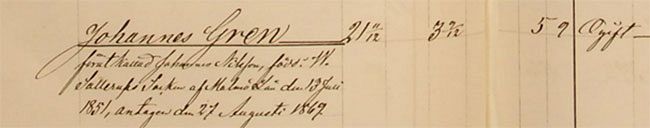 Johannes Gren 21 11/12 3 2/12 5 9 Ogift
förut kallad Johannes Nilsson, född i W.
Sallerups Socken af Malmö Län den 13 Juli
1851, antagen den 27 Augusti 1869